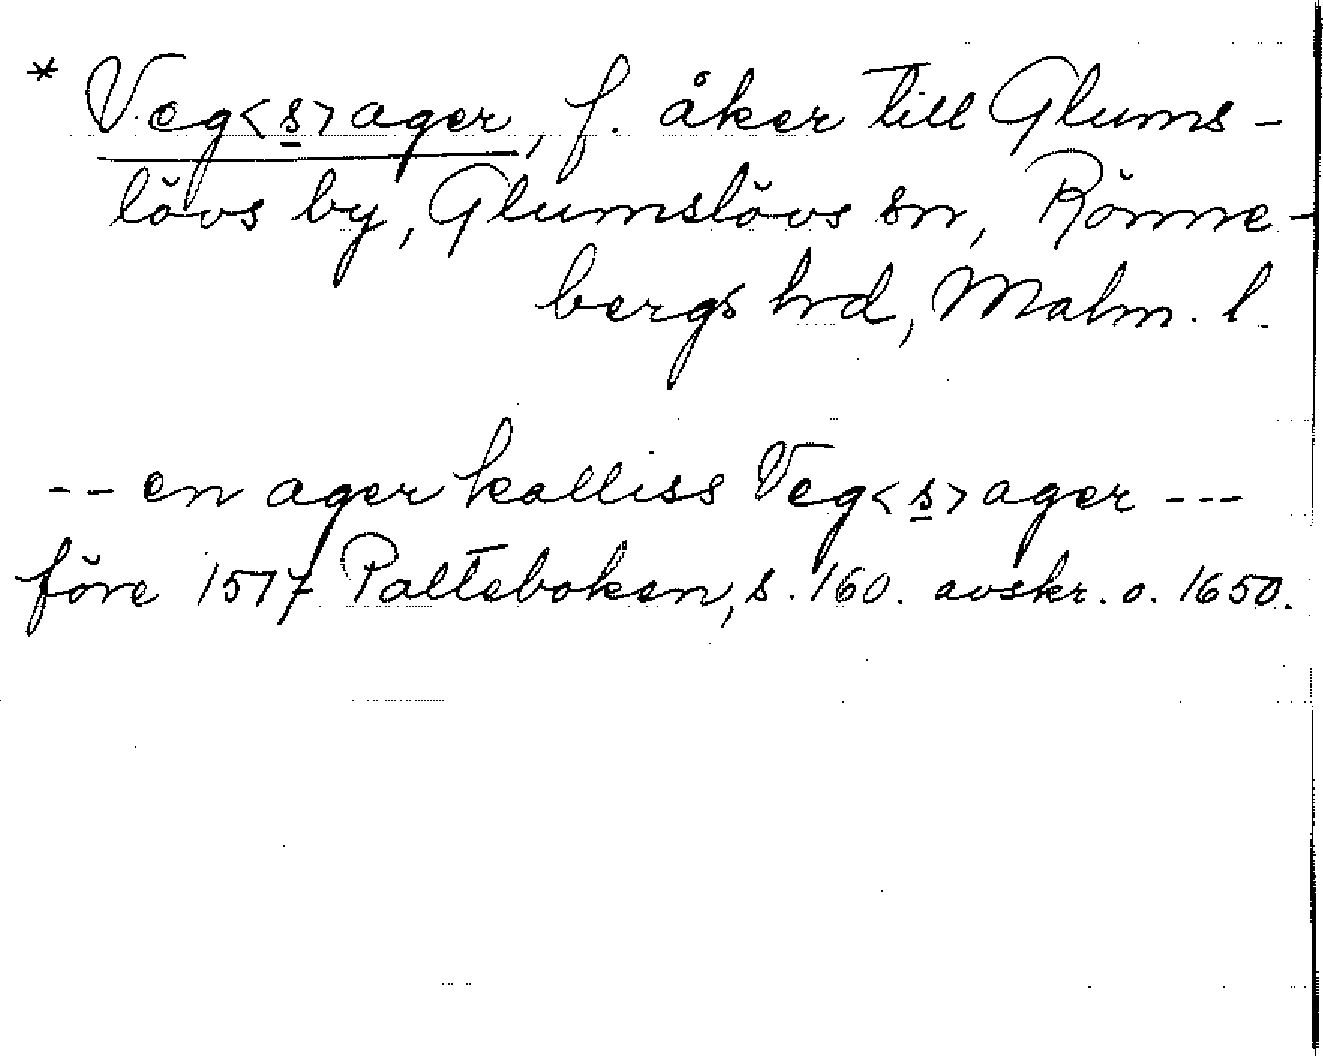 * Veg<s>ager, f. åker till Glums-
lövs by, Glumslövs sn, Rönne-
bergs hrd, Malm. l.
-- en ager kalliss Veg<s>ager ---
före 1517 Palteboken, s. 160. avskr. o. 1650.